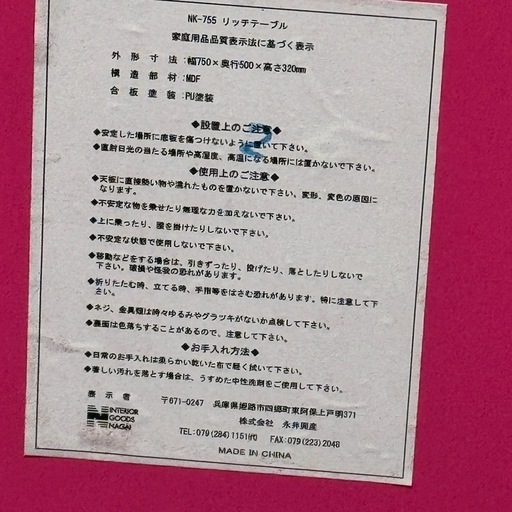 NK-755 リッチテーブル
家庭用品品質表示法に基づく表示
外形寸法:幅750×奥行500×高さ320mm
構造部材:MDF
合板塗装:PU塗装
◆設置上のご注意◆
◆安定した場所に底板を傷つけないように置いて下さい。
◆直射日光の当たる場所や高湿度、高温になる場所には置かないで下さい。
◆使用上のご注意◆
◆天板に直接熱い物や濡れたものを置かないで下さい、変形、変色の原因に
なります。
◆不安定な物を乗せたり無理な力を加えないで下さい。
◆上に乗ったり、腰を掛けたりしないで下さい。
◆不安定な状態で使用しないで下さい。
◆移動などをする場合は、引きずったり、投げたり、落としたりしないで
下さい。破損や怪我の恐れがあります。
◆折りたたむ時、立てる時、手指等をはさむ恐れがあります。特に注意して下
さい。
◆ネジ、金具類は時々ゆるみやグラツキがないか点検して下さい。
◆裏面は色落ちすることがあるので、注意して下さい。
◆お手入れ方法◆
◆日常のお手入れは柔らかい乾いた布で軽く拭いて下さい。
◆著しい汚れを落とす場合は、うすめた中性洗剤をご使用して下さい。
表示者
INTERIOR
GOODS
NAGAI
〒671-0247 兵庫県姫路市四郷町東阿保上戸明371
株式会社 永井興産
TEL:079(284)1151㈹ FAX:079(223)2048
MADE IN CHINA
2